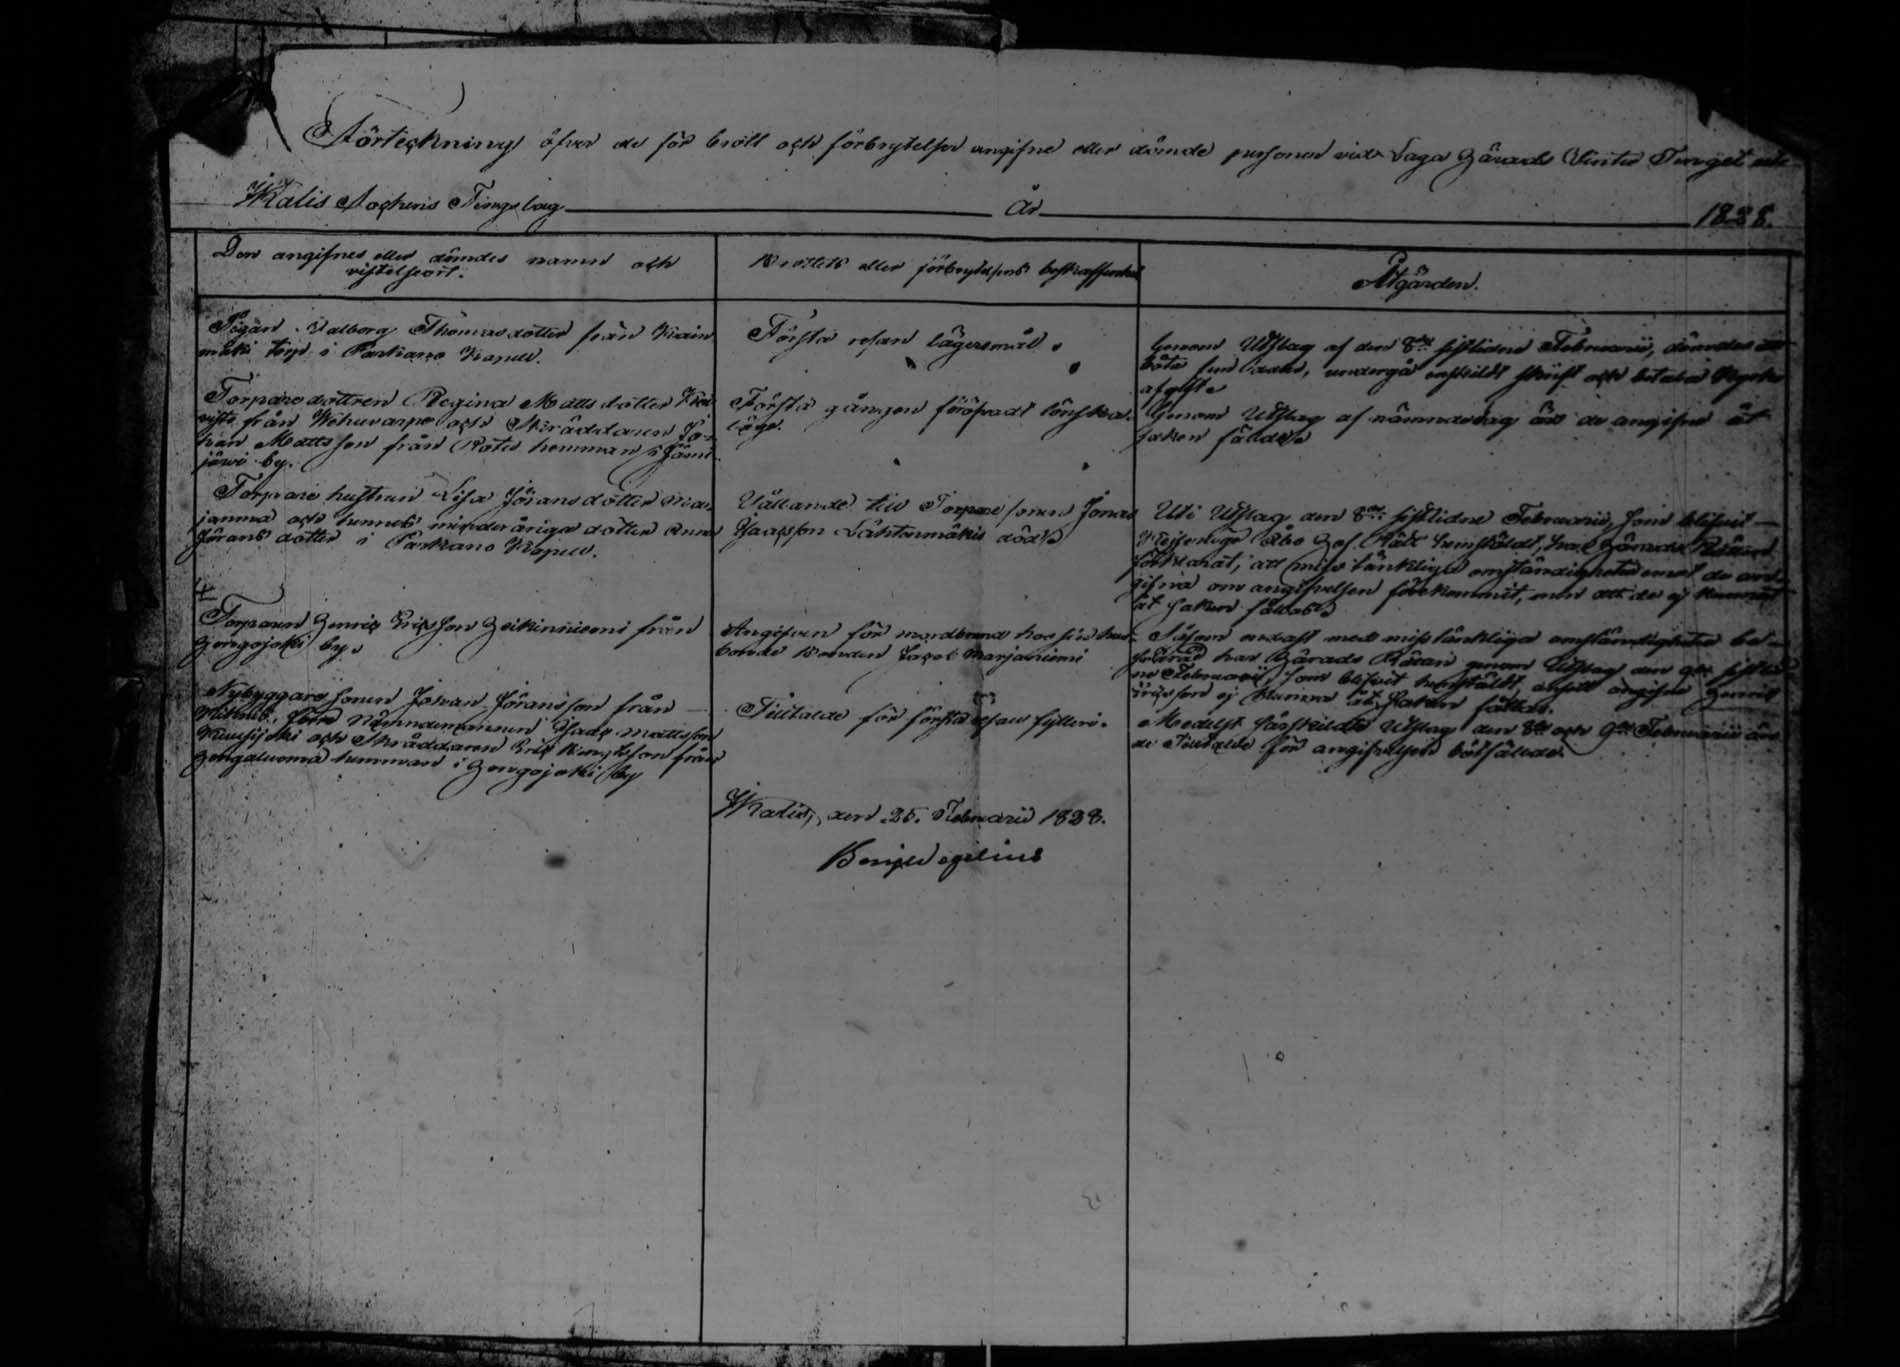 Förteckning öfver de för brott och förbrytelser angifne eller dömde personer vid Laga Härads Winter Tinget
Ikalis Sockens Tingslag År 1828.
Den angifnes eller dömdes namn och
vistelseort.
Brottets eller förbrytelsens beskaffenhet
Åtgärden.
Pigan Valborg Thomasdotter från
mäki torp i Parkano Kapell.
Första resan lägersmål.
Genom Utslag af den 8de sistlidne Februarii, dömdes att
böta fem daler, undergå enskildt skrift och betala Kyrko
afgift
Torparedottren Regina Mattsdotter
från Wehuvarpe och Skräddaren Jo-
han Mattsson från Rötis hemman i Jämi-
järvi by.
Första gången föröfvadt lönska-
läge.
Genom Utslag af nämnde dag äro de angifne åt
saken fälde
Torpare hustrun Lisa Jöransdotter Mar-
janma och hennes minderåriga dotter Anna
Jöransdotter i Parkano Kapell.
Vållande till Torpare sonen Jonas
Isacsson Lähtenmäkis död
Uti Utslag den 8de sistlidne Februarii, som blifvit
Kejserliga Åbo Hof Rätt hemstäldt, har Härads Rätten
förklarat, att misstänkliga omständigheter emot de an-
gifna om angifvelsen förekommit, men att de ej kunnat
åt saken fällas
Torparen Henric Ericsson Heikinniemi från
Hongojoki by.
Angifven för mordbrand hos sin hus-
bonde Bonden Jacob Marjaniemi
Såsom endast med misstänkliga omständigheter be-
svärad har Härads Rätten genom Utslag den 9de sistlid-
ne Februarii, som blifvit hemstäldt, ansett angifne Henric
Ericsson ej kunna åt saken fällas.
Nybyggare sonen Johan Jöransson från
Nämndemannen Isac Mattsson
och Skräddaren Eric från
Hongaluoma hemman i Hongojoki by
Tilltalde för första resan fylleri.
Medelst särskilde Utslag den 8de och 9de Februarii äro
de Tilltalde för angifvelsen bötfälde.
Ikalis, den 25. Februarii 1828.